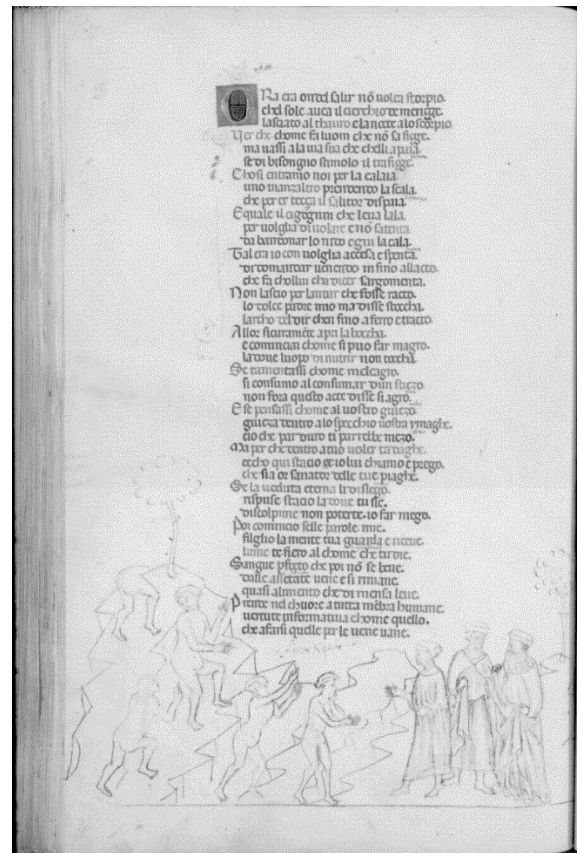 Ora era onde l salir nõ volea storpio.
chel sole auea il cierchio de merigge.
lasciato al thauro e la nocte a lo scorpio.
Per che chome fa luom che nõ sa figge.
ma uassi a la uia sua che chelli apaia.
se di bisongno stimolo il trafigge.
Chosi entramo noi per la calaia
uno innanzi altro prendendo la scala.
che per
Equale il cigognin che leua lala.
per uolglia di uolare e nõ sattenta
da bandonar lo nido e giu la cala.
Tal era io con uolglia accesa e spenta.
di domandar uenendo in fino allacto.
che fa cholui cha dicer sargomenta.
Non lascio per landar che fosse racto.
lo dolce padre mio ma disse scocca.
larcho del dir chen fino a ferro
Allor sicuramente apri la boccha.
e cominciai chome si puo far magro.
la doue luopo di nutrir non toccha.
Se tamentassi chome meleagro.
si consumo al consumar dun stizzo
non fora questo acte disse si agro.
E se pensassi chome al uostro guizzo
guizza dentro a lo specchio uostra ymaghe.
cio che par duro ti parrebbe mezo.
Ma per che dentro a tuo uoler
eccho qui stacio et io lui chiamo e prego.
che sia or sanator delle tue piaghe.
Se la ueduta eterna li dislego.
rispuse stacio la doue tu sie.
discolpime non poterte io far nego.
Poi comincio selle parole mie.
filglio la mente tua guarda e riceue.
lume te fiero al chome che tu die.
Sangue pfecto che poi nõ se beue.
dalle assetate uene e si rimane.
quasi alimento che di mensa leue.
Prende nel chuore a tutta mẽbra humane.
uertute informatiua chome quello.
che a farsi quelle per le uene uane.